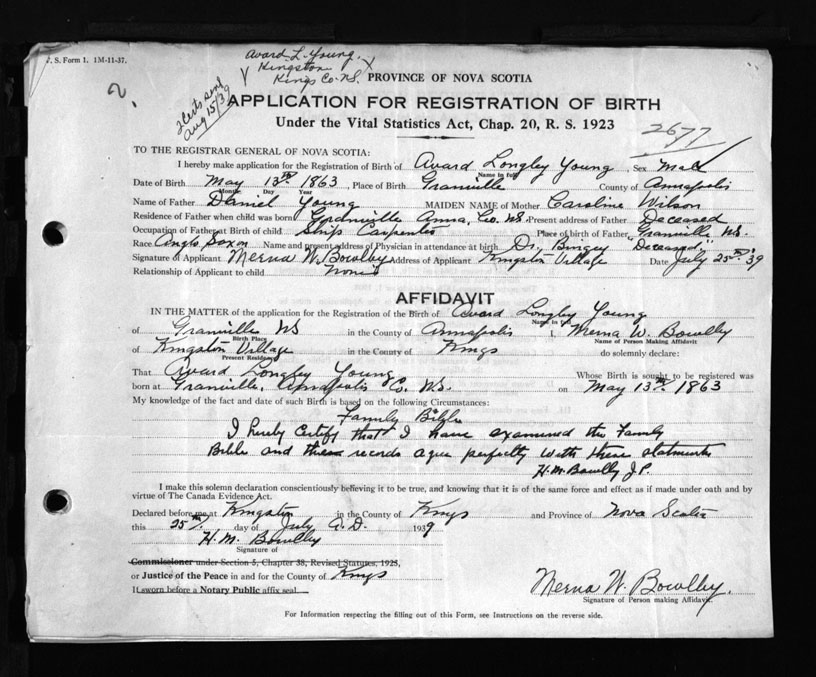 V. S. Form 1. 1M-11-37.
Avard L. Young,
Kingston
Kings Co. N.S.
2 Certs send
Aug 15/39
2.
PROVINCE OF NOVA SCOTIA
APPLICATION FOR REGISTRATION OF BIRTH
Under the Vital Statistics Act, Chap. 20, R. S. 1923
2677
TO THE REGISTRAR GENERAL OF NOVA SCOTIA:
I hereby make application for the Registration of Birth of Avard Longley Young, Sex Male
Name in full
Date of Birth May 13th 1863, Place of Birth Granville County of Annapolis
Month Day Year
Name of Father Daniel Young MAIDEN NAME of Mother Caroline Wilson
Residence of Father when child was born Granville Anna. Co. N.S. Present address of Father Deceased
Occupation of Father at Birth of child Ship Carpenter Place of birth of Father Granville N.S.
Race Anglo Saxon Name and present address of Physician in attendance at birth Dr. "Deceased"
Signature of Applicant Merna W. Bowlby Address of Applicant Kingston Village Date July 25th '39
Relationship of Applicant to child None
AFFIDAVIT
IN THE MATTER of the application for the Registration of the Birth of Avard Longley Young
Name in full
of Granville NS in the County of Annapolis I, Merna W. Bowlby
Birth Place Name of Person Making Affidavit
of Kingston Village in the County of Kings do solemnly declare:
Present Residence
That Avard Longley Young Whose Birth is sought to be registered was
born at Granville, Annapolis Co. N.S. on May 13th 1863
My knowledge of the fact and date of such Birth is based on the following Circumstances:
Family Bible
I hereby certify that I have examined the Family
Bible and these records agree perfectly with these statments
H. M. Bowlby J.P.
I make this solemn declaration conscientiously believing it to be true, and knowing that it is of the same force and effect as if made under oath and by
virtue of The Canada Evidence Act.
Declared before me at Kingston in the County of Kings and Province of Nova Scotia
this 25th day of July A.D. 1939
H. M. Bowlby
Signature of
Commissioner under Section 5, Chapter 38, Revised Statutes, 1923,
or Justice of the Peace in and for the County of Kings
If sworn before a Notary Public affix seal
Merna W. Bowlby.
Signature of Person making Affidavit.
For Information respecting the filling out of this Form, see Instructions on the reverse side.